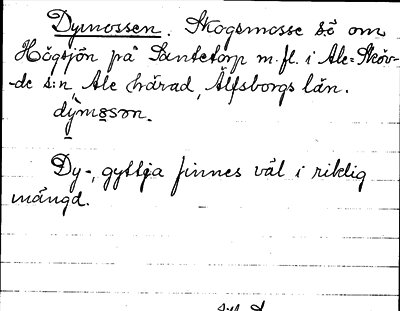 Dymossen. Skogsmosse sö om
Högsjön på Santetorp m.fl. i Ale=Sköv-
-de s:n, Ale härad, Älfsborgs län.
dỳmosən.
Dy-, gyttja finnes väl i riklig
mängd.